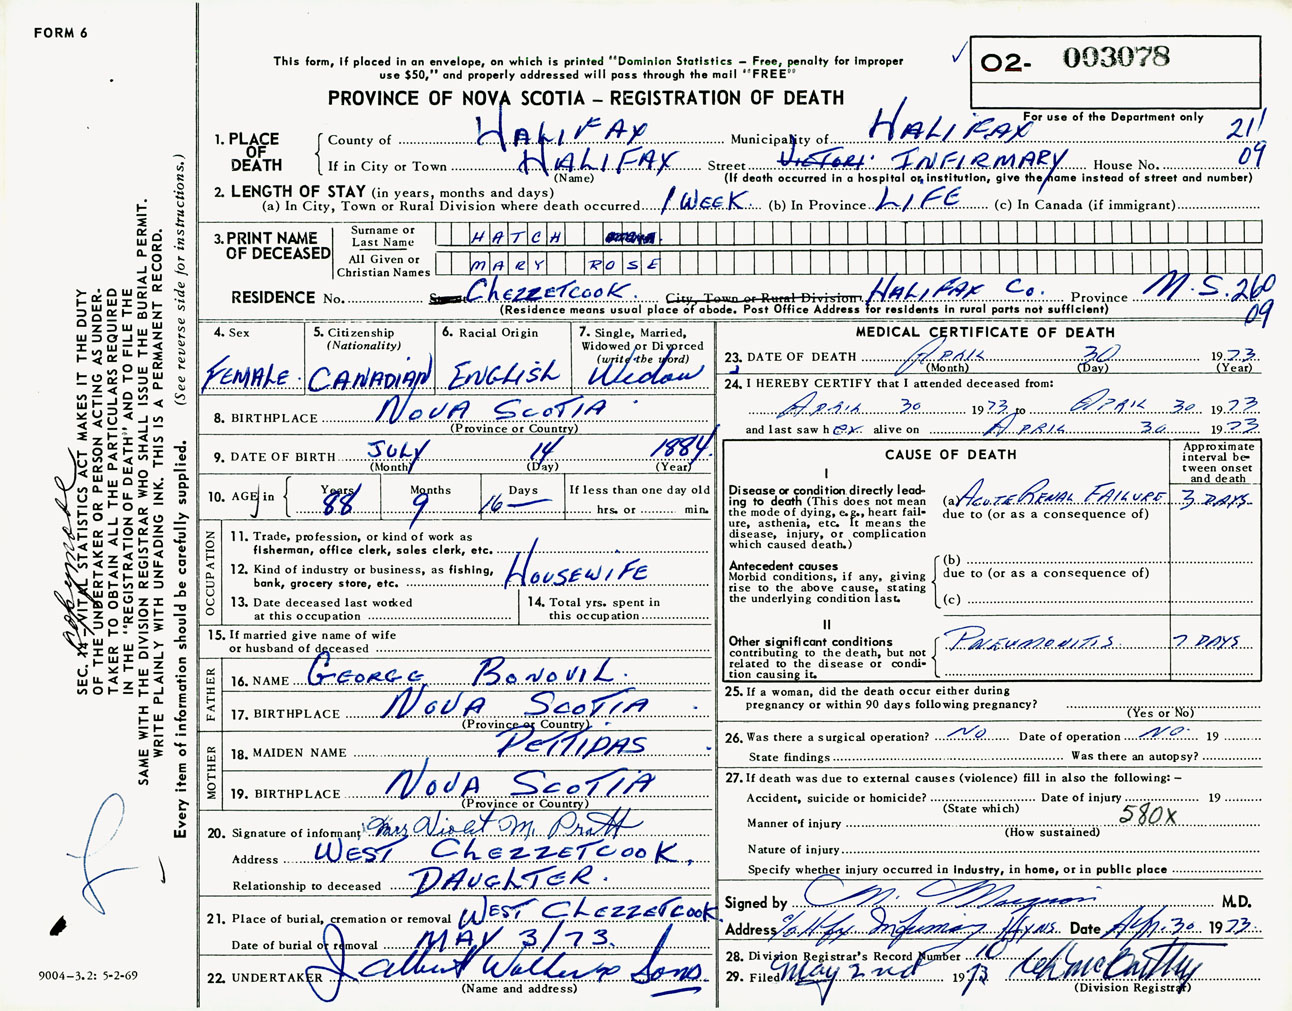 FORM 6
This form, if placed in an envelope, on which is printed "Dominion Statistics – Free, penalty for improper
use $50," and properly addressed will pass through the mail "FREE"
O2- 003078
PROVINCE OF NOVA SCOTIA – REGISTRATION OF DEATH
For use of the Department only
1. PLACE OF DEATH
County of HALIFAX Municipality of HALIFAX 211
If in City or Town HALIFAX Street INFIRMARY House No. 09
(Name) (If death occurred in a hospital or institution, give the name instead of street and number)
2. LENGTH OF STAY (in years, months and days)
(a) In City, Town or Rural Division where death occurred 1 WEEK (b) In Province LIFE (c) In Canada (if immigrant)
3. PRINT NAME OF DECEASED
Surname or Last Name HATCH
All Given or Christian Names MARY ROSE
RESIDENCE No. CHEZZETCOOK. City, Town or Rural Division HALIFAX Co. Province N.S. 260
(Residence means usual place of abode. Post Office Address for residents in rural parts not sufficient) 09
4. Sex
FEMALE
5. Citizenship
(Nationality)
CANADIAN
6. Racial Origin
ENGLISH
7. Single, Married,
Widowed or Divorced
(write the word)
Widow
8. BIRTHPLACE NOVA SCOTIA
(Province or Country)
9. DATE OF BIRTH JULY 14 1884
(Month) (Day) (Year)
10. AGE in Years Months Days If less than one day old
88 9 16 — hrs. or min.
OCCUPATION
11. Trade, profession, or kind of work as
fisherman, office clerk, sales clerk, etc.
12. Kind of industry or business, as fishing,
bank, grocery store, etc. HOUSEWIFE
13. Date deceased last worked
at this occupation
14. Total yrs. spent in
this occupation
15. If married give name of wife
or husband of deceased
FATHER
16. NAME GEORGE BONOVIL.
17. BIRTHPLACE NOVA SCOTIA
(Province or Country)
MOTHER
18. MAIDEN NAME PETTIPAS
19. BIRTHPLACE NOVA SCOTIA
(Province or Country)
20. Signature of informant Mrs Violet M. Pratt
Address WEST CHEZZETCOOK.
Relationship to deceased DAUGHTER.
21. Place of burial, cremation or removal WEST CHEZZETCOOK
Date of burial or removal MAY 3/73.
22. UNDERTAKER J Albert Walker & Sons
(Name and address)
MEDICAL CERTIFICATE OF DEATH
23. DATE OF DEATH APRIL 30 1973
(Month) (Day) (Year)
24. I HEREBY CERTIFY that I attended deceased from:
APRIL 30 1973 to APRIL 30 1973
and last saw her alive on APRIL 30 1973
CAUSE OF DEATH
Approximate
interval be-
tween onset
and death
I
Disease or condition directly lead-
ing to death (This does not mean
the mode of dying, e.g., heart fail-
ure, asthenia, etc. It means the
disease, injury, or complication
which caused death.)
(a) ACUTE RENAL FAILURE 3 DAYS
due to (or as a consequence of)
Antecedent causes
Morbid conditions, if any, giving
rise to the above cause, stating
the underlying condition last.
(b)
due to (or as a consequence of)
(c)
II
Other significant conditions
contributing to the death, but not
related to the disease or condi-
tion causing it.
PNEUMONITIS 7 DAYS
25. If a woman, did the death occur either during
pregnancy or within 90 days following pregnancy?
(Yes or No)
26. Was there a surgical operation? NO Date of operation NO. 19
State findings Was there an autopsy?
27. If death was due to external causes (violence) fill in also the following: –
Accident, suicide or homicide? Date of injury 19
(State which)
Manner of injury 580X
(How sustained)
Nature of injury
Specify whether injury occurred in Industry, in home, or in public place
Signed by M. M.D.
Address Infirmary Date Apr. 30 1973
28. Division Registrar's Record Number
29. Filed May 2nd 1973 McCarthy
(Division Registrar)
SEC. VITAL STATISTICS ACT MAKES IT THE DUTY
OF THE UNDERTAKER OR PERSON ACTING AS UNDER-
TAKER TO OBTAIN ALL THE PARTICULARS REQUIRED
IN THE "REGISTRATION OF DEATH" AND TO FILE THE
SAME WITH THE DIVISION REGISTRAR WHO SHALL ISSUE THE BURIAL PERMIT.
WRITE PLAINLY WITH UNFADING INK. THIS IS A PERMANENT RECORD.
Every item of information should be carefully supplied. (See reverse side for instructions.)
9004-3.2: 5-2-69